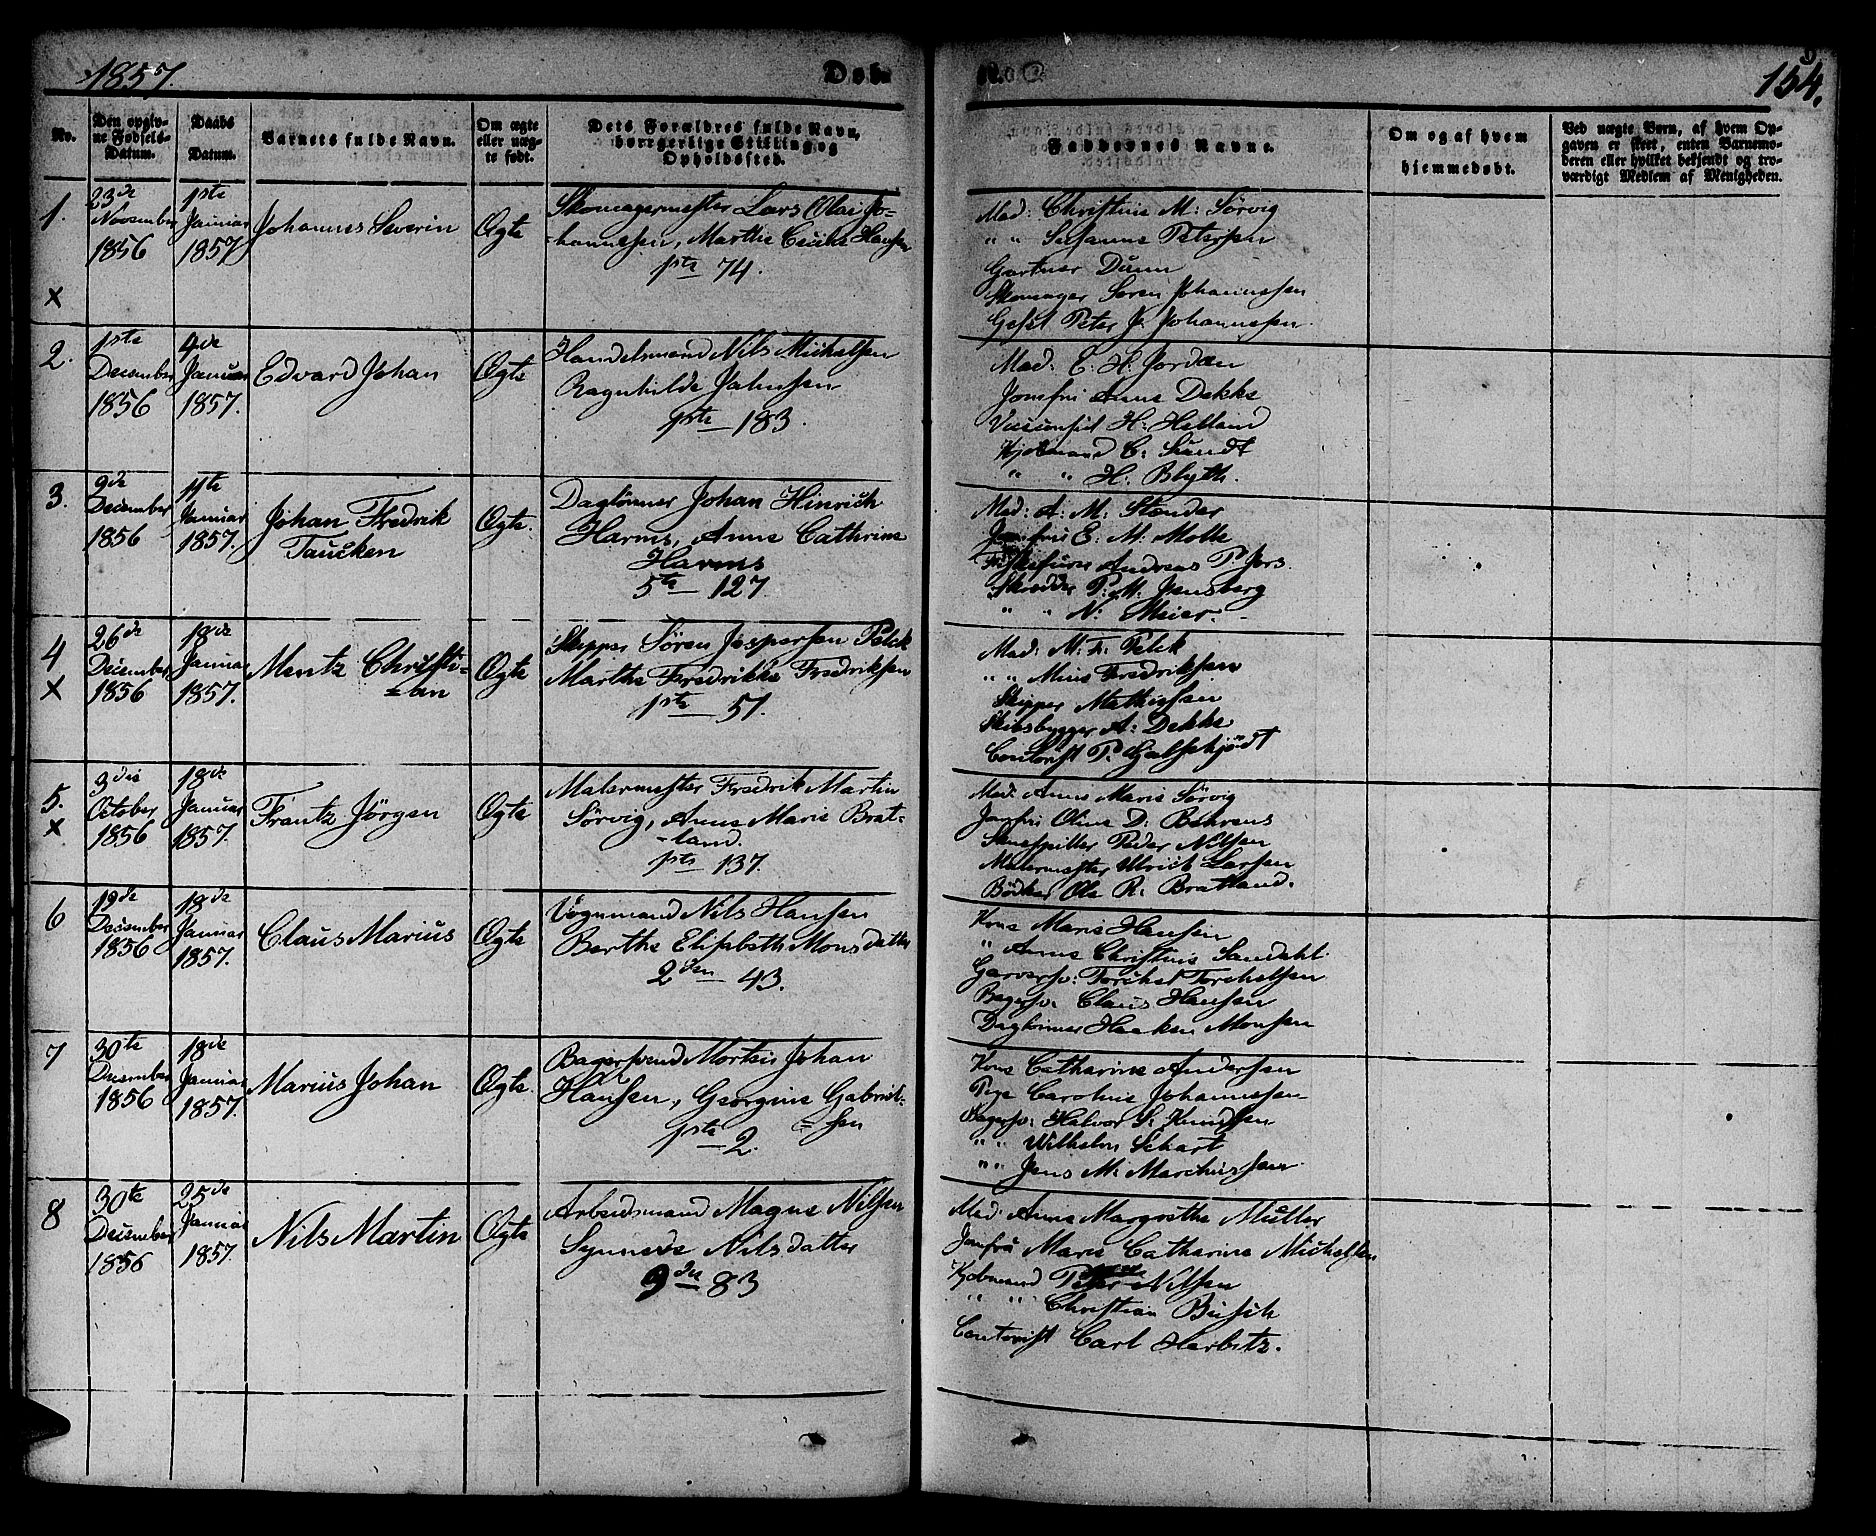 1857.
Døb-
154.
No.
Den opgiv-
ne Fødsels-
Datum.
Daabs
Datum.
Barnets fulde Navn.
Om ægte
eller uæg-
te født.
Dets Forældres fulde Navn,
borgerlige Stilling og
Opholdssted.
Faddernes Navne.
Om og af hvem
hjemmedøbt.
Ved uægte Børn, af hvem Op-
gaven er skeet, enten Barnemo-
deren eller hvilket bekjendt og tro-
værdigt Medlem af Menigheden.
1.
x
23de
November
1856
1ste
Januar
1857
Johannes Severin
Ægte
Skomagermester Lars Olai Jo-
-hannesen, Marthe Hansen
1ste - 74.
Mad: Christine M: Sörvig
" " Susanne Petersen
Gartner Dünn
Skomager Sören Johannesen
Peter J. Johannesen.
2.
1ste
December
1856
4de
Januar
1857.
Edvard Johan
Ægte
Handelsmand Nils Michelsen
Ragnhilde Jahnsen
1ste - 183.
Mad: E. H. Jordan
Jomfru Anne Dekke
H: Helland
Kjøbmand C: Sundt
" " H. Blyth.
3.
9de
December
1856
11te
Januar
1857.
Johan Fredrik
Taucken
Ægte.
Daglönner Johan Hinrich
Harms, Anne Cathrine
Harms
5te - 127
Mad: A: M: Stender
Jomfru E. M. Molle
Andreas P. Jers.
Skrædder P. M. Jensberg
" " N: Meier.
4
x
26de
December
1856
18de
Januar
1857.
Mentz Christi-
=an
Ægte
Skipper Sören Jespersen Pelck
Marthe Fredrikke Fredriksen
1ste - 51.
Mad: M: F: Pelck
" " Mine Fredriksen
Skipper Mathiesen
Skibsbygger A: Dekke
Contorist P. Galschjödt
5.
x
3die
October
1856
18de
Januar
1857.
Frantz Jörgen
Ægte
Malermester Fredrik Martin
Sörvig, Anne Marie Brat-
-land.
1ste - 137.
Mad: Anne Marie Sörvig
Jomfru Oline D: Behrens
Peder Nilsen
Malermester Ulrich Larsen
Bödker Ole R. Bratland.
6
19de
December
1856
18de
Januar
1857.
Claus Marius
Ægte
Vognmand Nils Hansen
Berthe Elisabeth Monsdatter
2den - 43.
Kone Marie Hansen
" Anne Christine Sandahl
Garversv: Torchel Torchelsen
Bagersv: Claus Hansen
Daglönner Haaken Monsen
7
30te
December
1856
18de
Januar
1857.
Marius Johan
Ægte.
Bagersvend Morten Johan
Hansen, Georgine Gabriel-
=sen
1ste - 2.
Kone Catharine Andersen
Pige Caroline Johannesen
Bagersv: Halvor S: Knudsen
" " Wilhelm Schart
" " Jens M: Marchussen
8
30te
December
1856
25de
Januar
1857.
Nils Martin
Ægte
Arbeidsmand Magne Nilsen
Synneve Nilsdatter
9de - 83
Mad: Anne Margrethe Müller
Jomfru Marie Catharine Michelsen
Kjöbmand Peter Nilsen
" " Christian Büsch
Contorist Carl Herbitz.